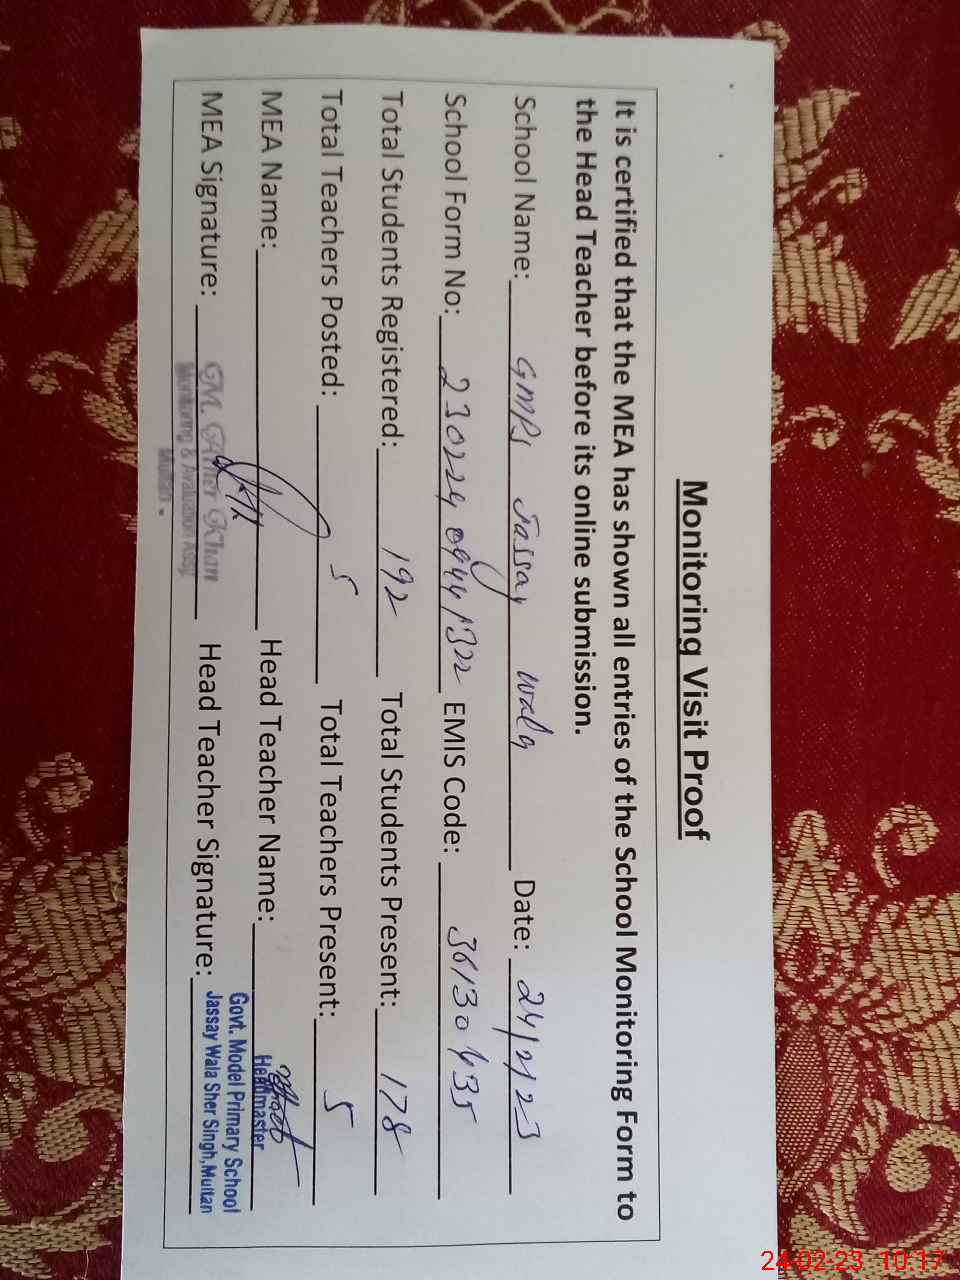 Monitoring Visit Proof
It is certified that the MEA has shown all entries of the School Monitoring Form to
the Head Teacher before its online submission.
School Name: GMPS Jassay wala Date: 24/2/23
School Form No: 23022409441322 EMIS Code: 36130435
Total Students Registered: 192 Total Students Present: 178
Total Teachers Posted: 5 Total Teachers Present: 5
MEA Name: Head Teacher Name:
Headmaster
Govt. Model Primary School
Jassay Wala Sher Singh, Multan
MEA Signature: Head Teacher Signature:
GM. Amer Khan
Monitoring & Evaluation Asstt
Multan.
24-02-23 10:17